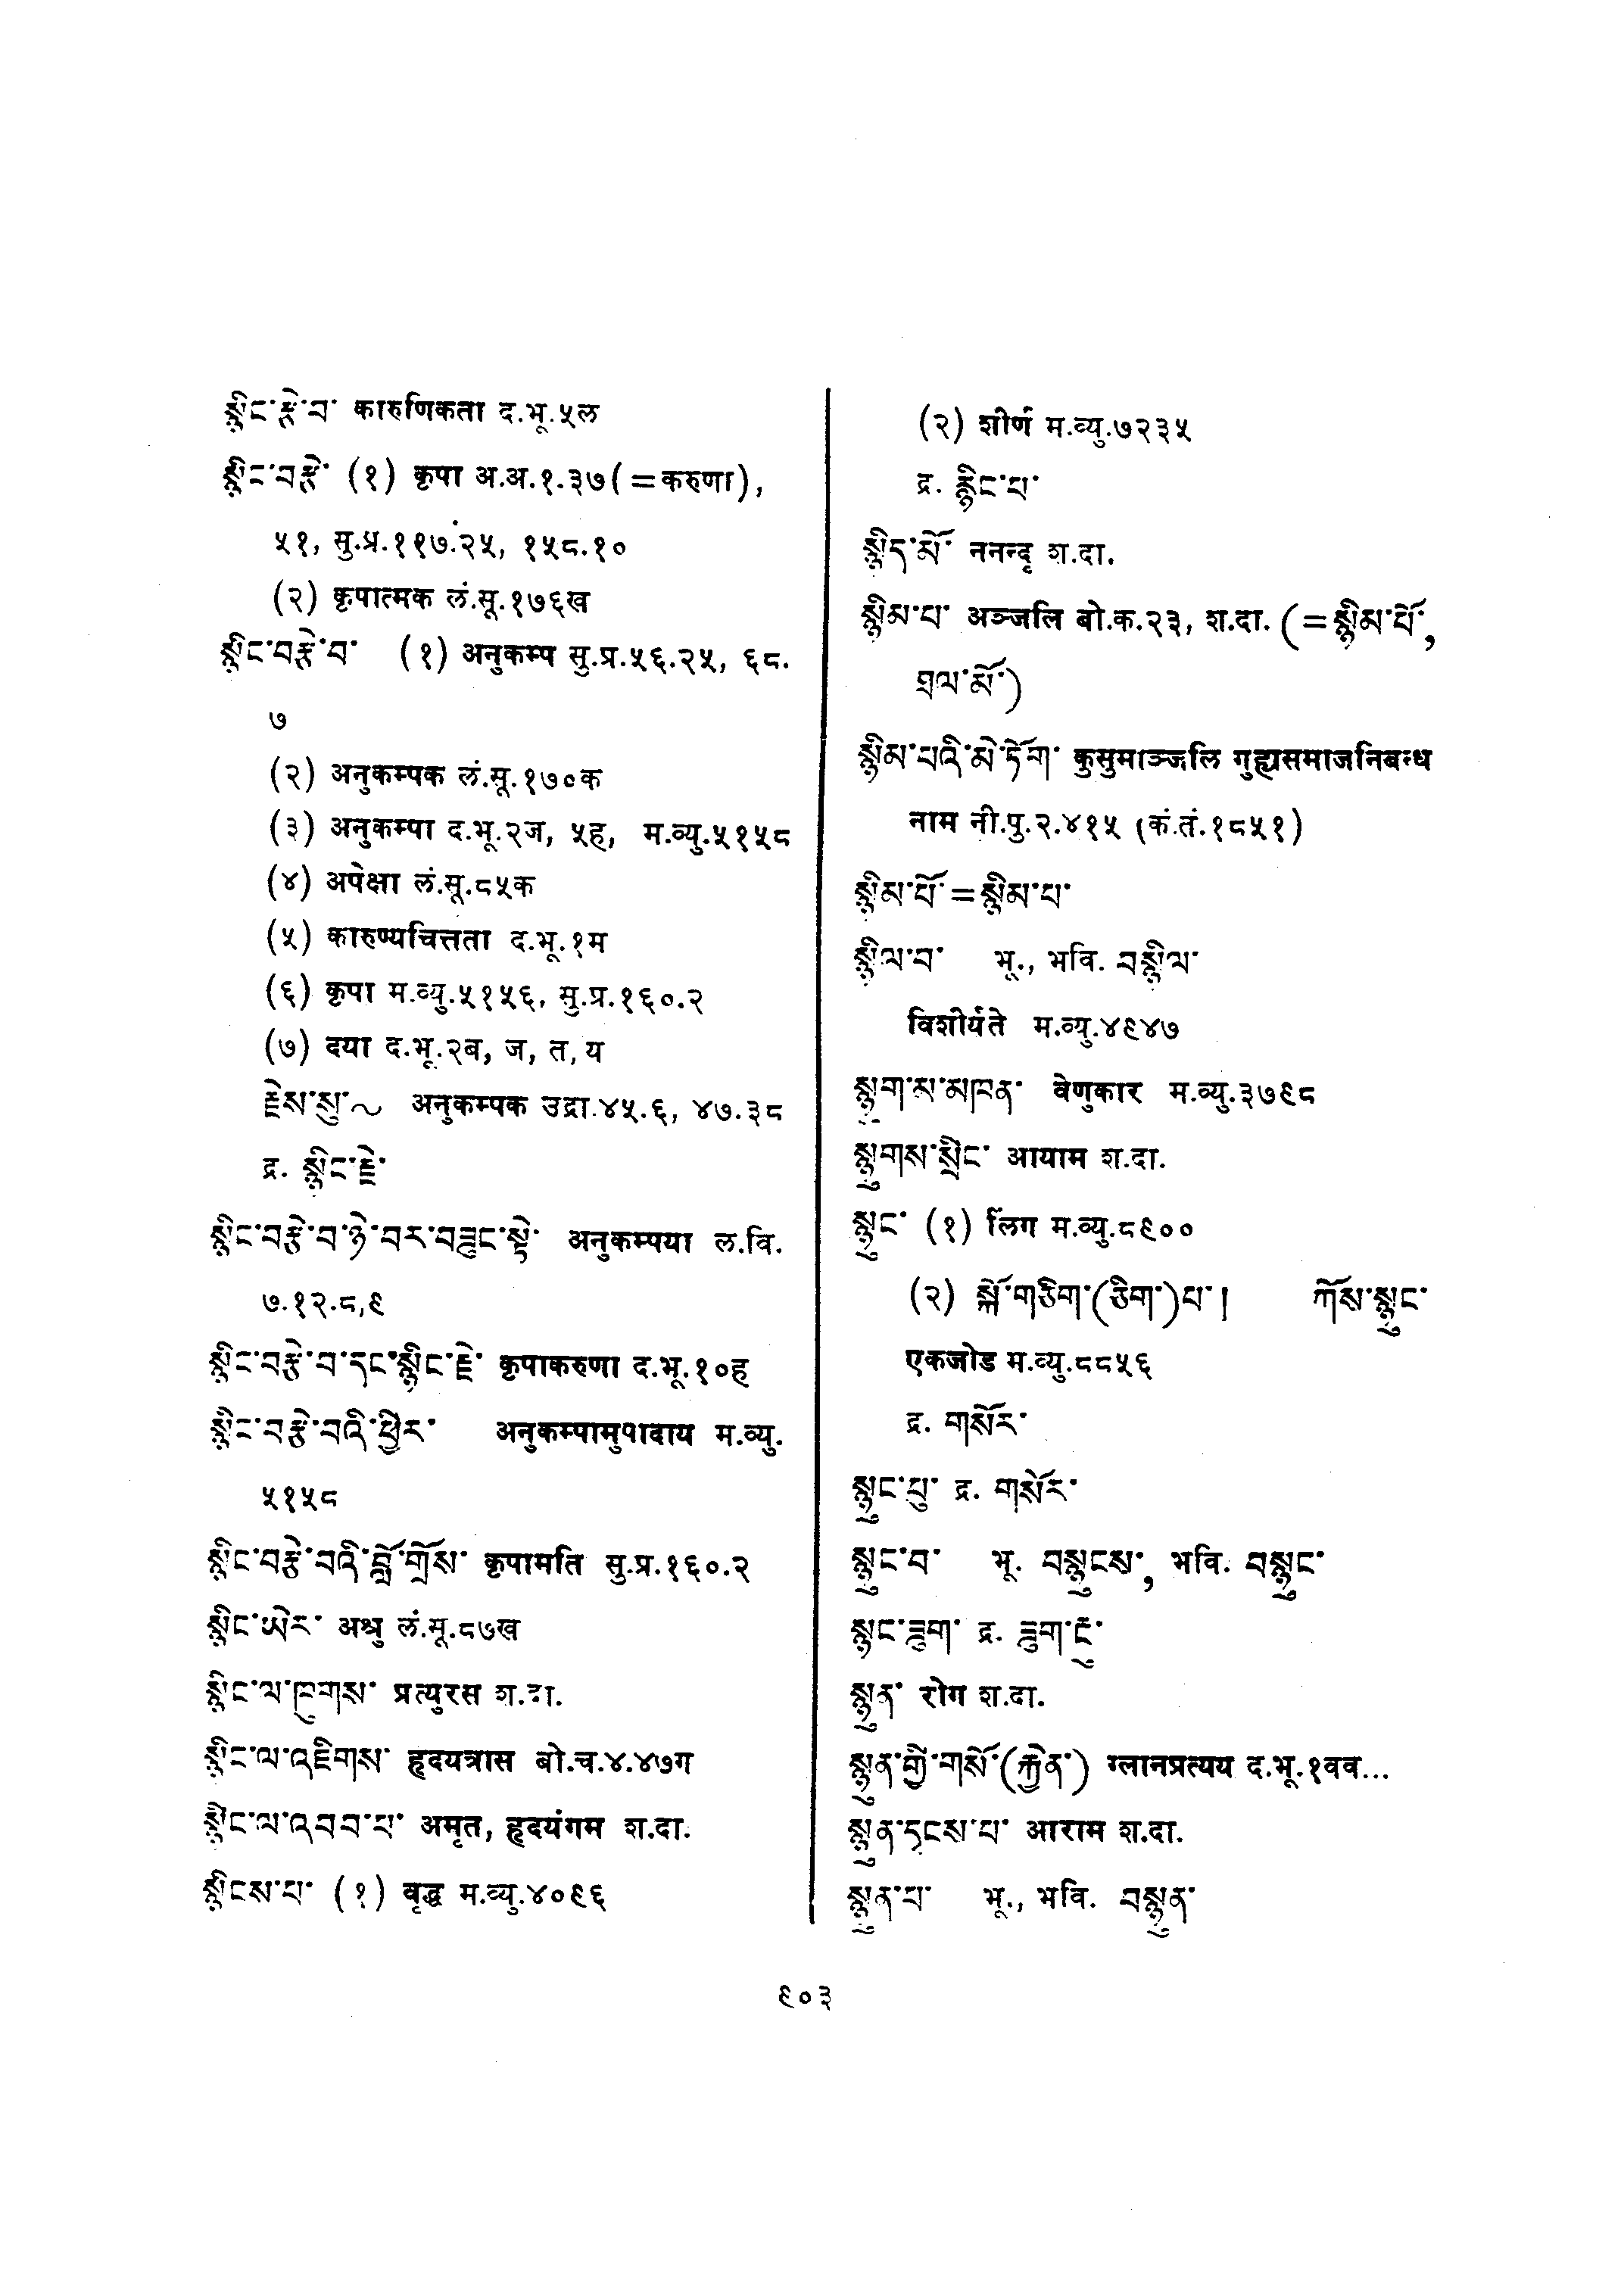 སྙིང་རྩེ་བ་ कारुणिकता द.भू.५ल
སྙིང་བརྩེ་ (१) कृपा अ.अ.१.३७(=करुणा),
५१, सु.प्र.११७.२५, १५८.१०
(२) कृपात्मक लं.सू.१७६ख
སྙིང་བརྩེ་བ་ (१) अनुकम्प सु.प्र.५६.२५, ६८.
७
(२) अनुकम्पक लं.सू.१७०क
(३) अनुकम्पा द.भू.२ज, ५ह, म.व्यु.५१५८
(४) अपेक्षा लं.सू.८५क
(५) कारुण्यचित्तता द.भू.१म
(६) कृपा म.व्यु.५१५६, सु.प्र.१६०.२
(७) दया द.भू.२ब, ज, त, य
རྗེས་སུ་~ अनुकम्पक उद्रा.४५.६, ४७.३८
द्र. སྙིང་རྗེ་
སྙིང་བརྩེ་བ་ཉེ་བར་བཟུང་སྟེ་ अनुकम्पया ल.वि.
७.१२.८,९
སྙིང་བརྩེ་བ་དང་སྙིང་རྗེ་ कृपाकरुणा द.भू.१०ह
སྙིང་བརྩེ་བའི་ཕྱིར་ अनुकम्पामुपादाय म.व्यु.
५१५८
སྙིང་བརྩེ་བའི་བློ་གྲོས་ कृपामति सु.प्र.१६०.२
སྙིང་ཡེར་ अश्रु लं.सू.८७ख
སྙིང་ལ་ཁུགས་ प्रत्युरस श.दा.
སྙིང་ལ་འཇིགས་ हृदयत्रास बो.च.४.४७ग
སྙིང་ལ་འབབ་པ་ अमृत, हृदयंगम श.दा.
སྙིངས་པ་ (१) वृद्ध म.व्यु.४०९६
(२) शीर्ण म.व्यु.७२३५
द्र. རྙིང་པ་
སྙིད་མོ་ ननन्दृ श.दा.
སྙིམ་པ་ अञ्जलि बो.क.२३, श.दा. (=སྙིམ་པོ་,
ཐལ་མོ་)
སྙིམ་པའི་མེ་ཏོག་ कुसुमाञ्जलि गुह्यसमाजनिबन्ध
नाम नी.पु.२.४१५ (कं.तं.१८५१)
སྙིམ་པོ་=སྙིམ་པ་
སྙིལ་བ་ भू., भवि. བསྙིལ་
विशीर्यते म.व्यु.४९४७
སྙུག་མ་མཁན་ वेणुकार म.व्यु.३७९८
སྙུགས་སྲིང་ आयाम श.दा.
སྙུང་ (१) लिंग म.व्यु.८९००
(२) སྐོ་གཅིག་(ཅིག་)པ་། ཀོས་སྙུང་
एकजोड म.व्यु.८८५६
द्र. གསོར་
སྙུང་བུ་ द्र. གསོར་
སྙུང་བ་ भू. བསྙུངས་, भवि. བསྙུང་
སྙུང་ཟུག་ द्र. ཟུག་རྔུ་
སྙུན་ रोग श.दा.
སྙུན་གྱི་གསོ་(རྐྱེན་) ग्लानप्रत्यय द.भू.१वव...
སྙུན་དྭངས་པ་ आराम श.दा.
སྙུན་པ་ भू., भवि. བསྙུན་
९०३